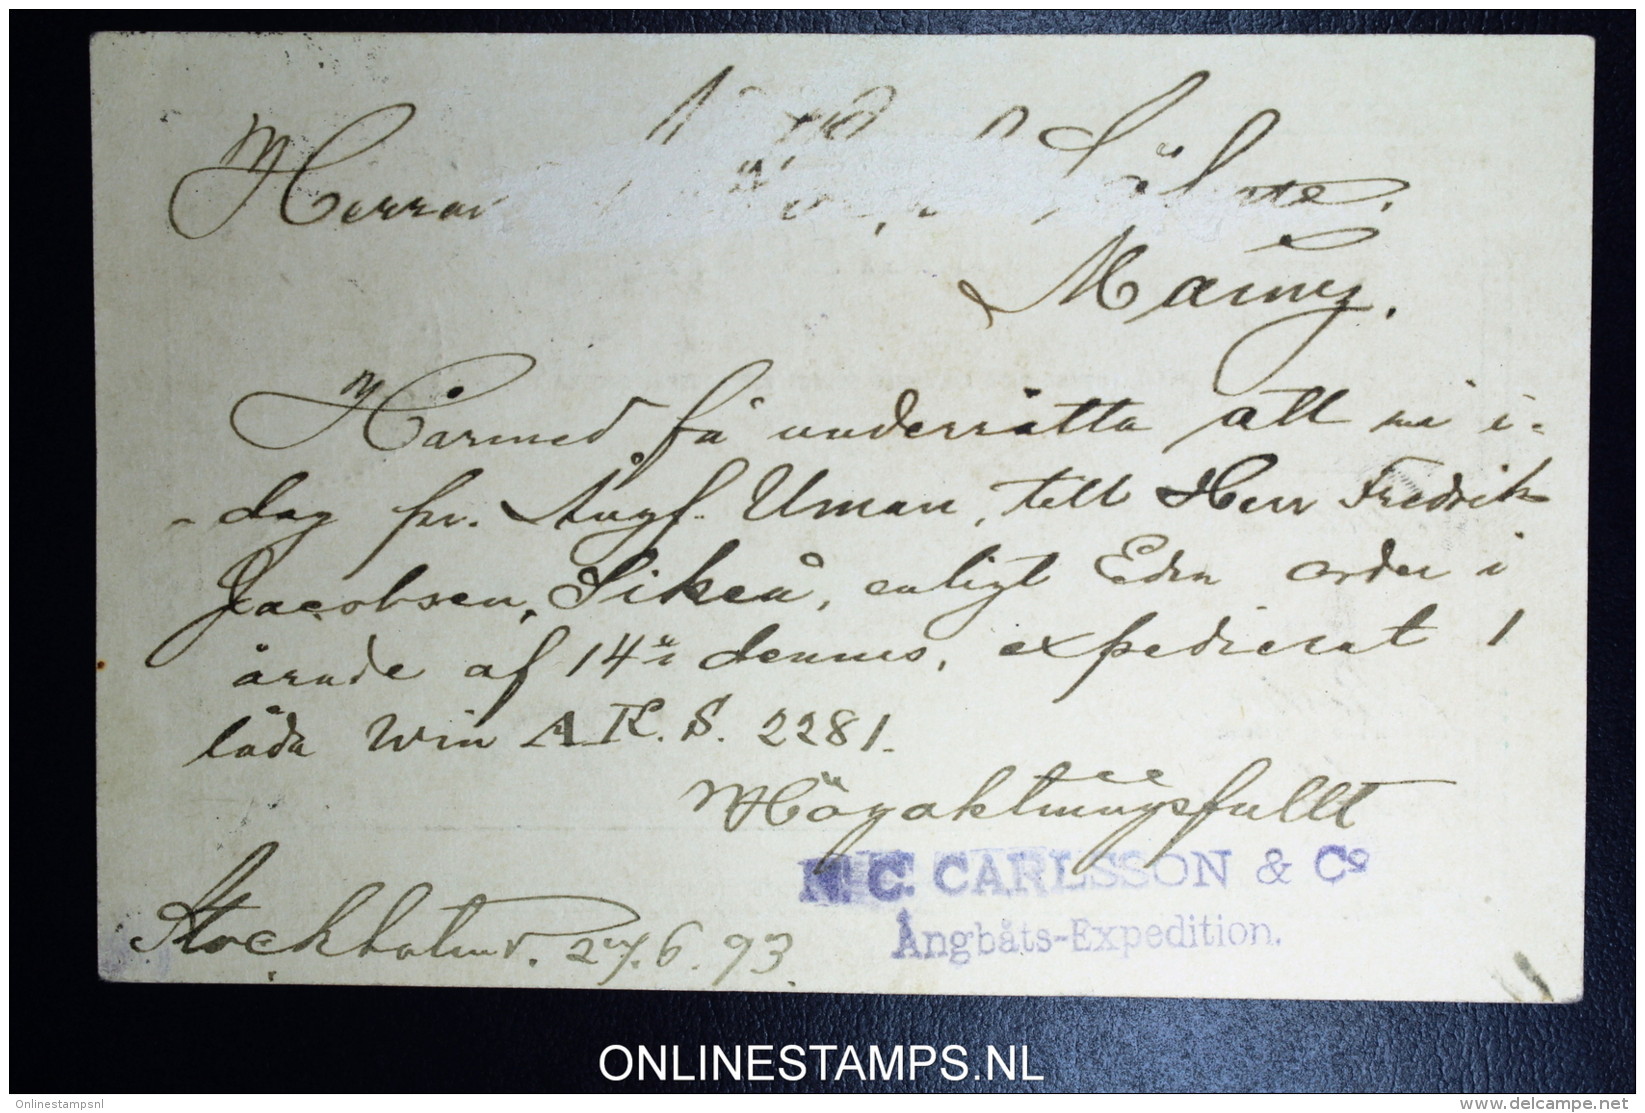 Herrar Söhne.
Mainz.
Härmed få underrätta att vi i-
-dag pr. Ångf. Uman, till Herr Fredrik
Jacobsen, Sikeå, enligt Eder order i
ärade af 14de dennes, expedierat 1
låda Win A.K.S. 2281.
Högaktningsfullt
N. C. CARLSSON & Co
Ångbåts-Expedition.
Stockholm d. 27.6.93.
ONLINESTAMPS.NL
Onlinestampsnl
www.delcampe.net